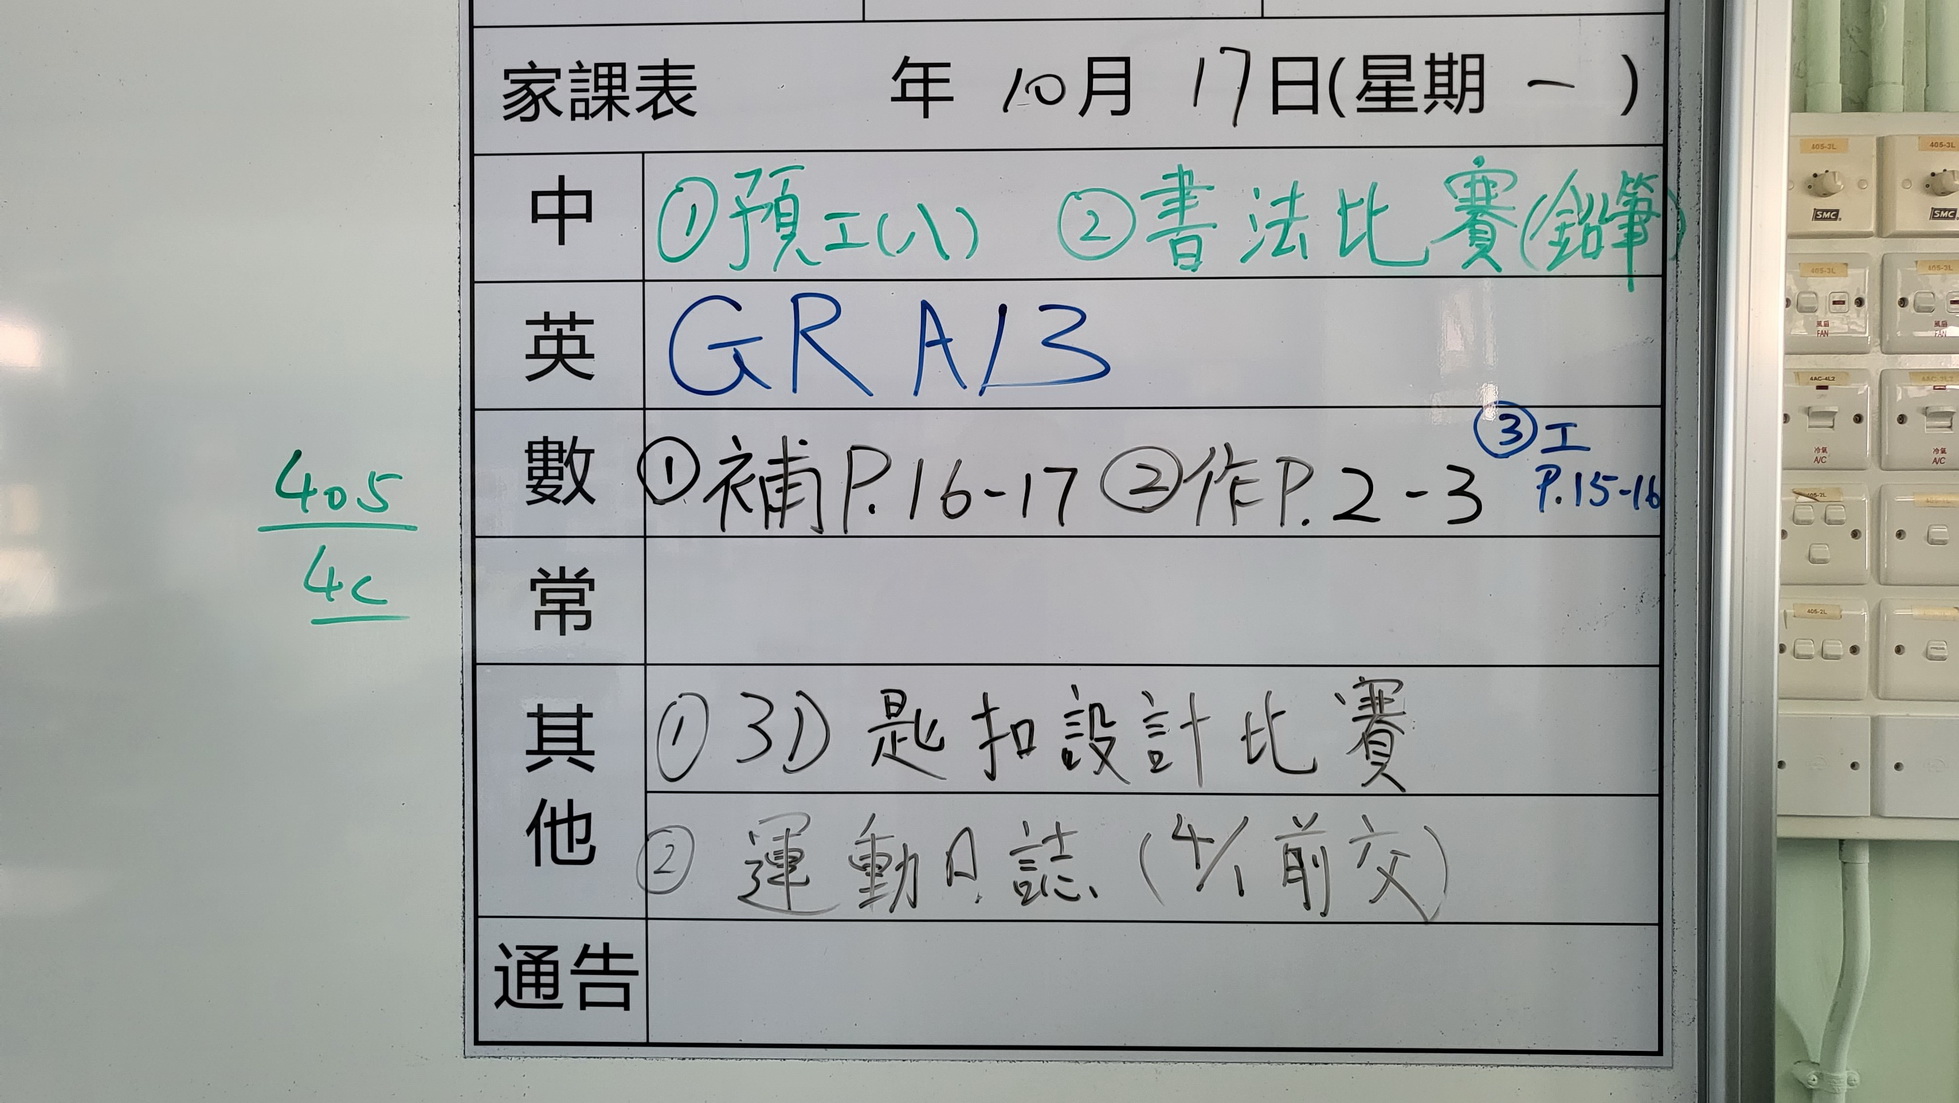 家課表 年 10月 17日(星期 一 )
中 ①預工(八) ②書法比賽(鉛筆)
英 GR A13
數 ①補P.16-17 ②作P.2-3 ③工
P.15-16
405
4C
常
其他 ①3D匙扣設計比賽
②運動日誌(4/1前交)
通告
405-3L
405-3L
SMC
SMC
405-3L
405-3L
風扇
FAN
風扇
FAN
4AC-4L2
冷氣
A/C
冷氣
A/C
405-2L